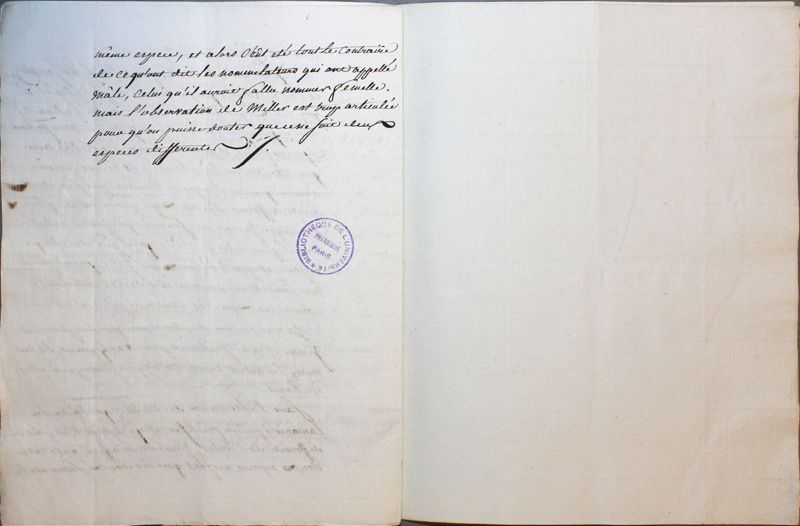 même espece, et alors c'eut eté tout le contraire
de ce qu'ont dit les nomenclateurs qui ont appellé
mâle, celui qu'il auroit fallu nommer femelle.
mais l'observation de Miller est trop articulée
pour qu'on puisse douter que ce ne soit deux
especes differentes
BIBLIOTHÈQUE DE L'UNIVERSITÉ
PHARMACIE
PARIS